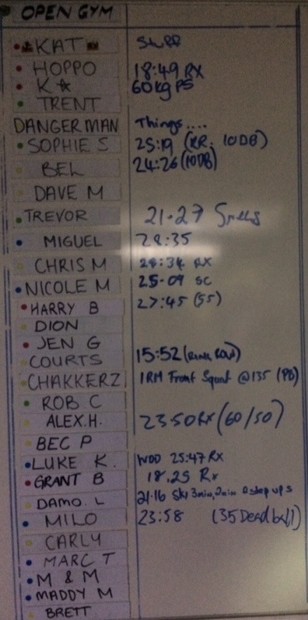 OPEN GYM
KAT
HOPPO 18:49 RX
K 60kg PS
TRENT
DANGERMAN Things....
SOPHIE S 25:19 (RR. 10DB)
BEL 24:26 (10DB)
DAVE M
TREVOR 21-27
MIGUEL 28:35
CHRIS M RX
NICOLE M 25-09 SC
HARRY B 27:45 (55)
DION
JEN G
COURTS 15:52
CHAKKERZ 1RM Front Squat @135 (PB)
ROB C
ALEX.H. 23:50 RX (60/50)
BEC P
LUKE K. WOD 25:47 RX
GRANT B 18.25 Rx
DAMO. L 21:16 Ski 3min, 2min step ups
MILO 23:58 (35 Dead ball)
CARLY
MARC T
M & M
MADDY M
BRETT